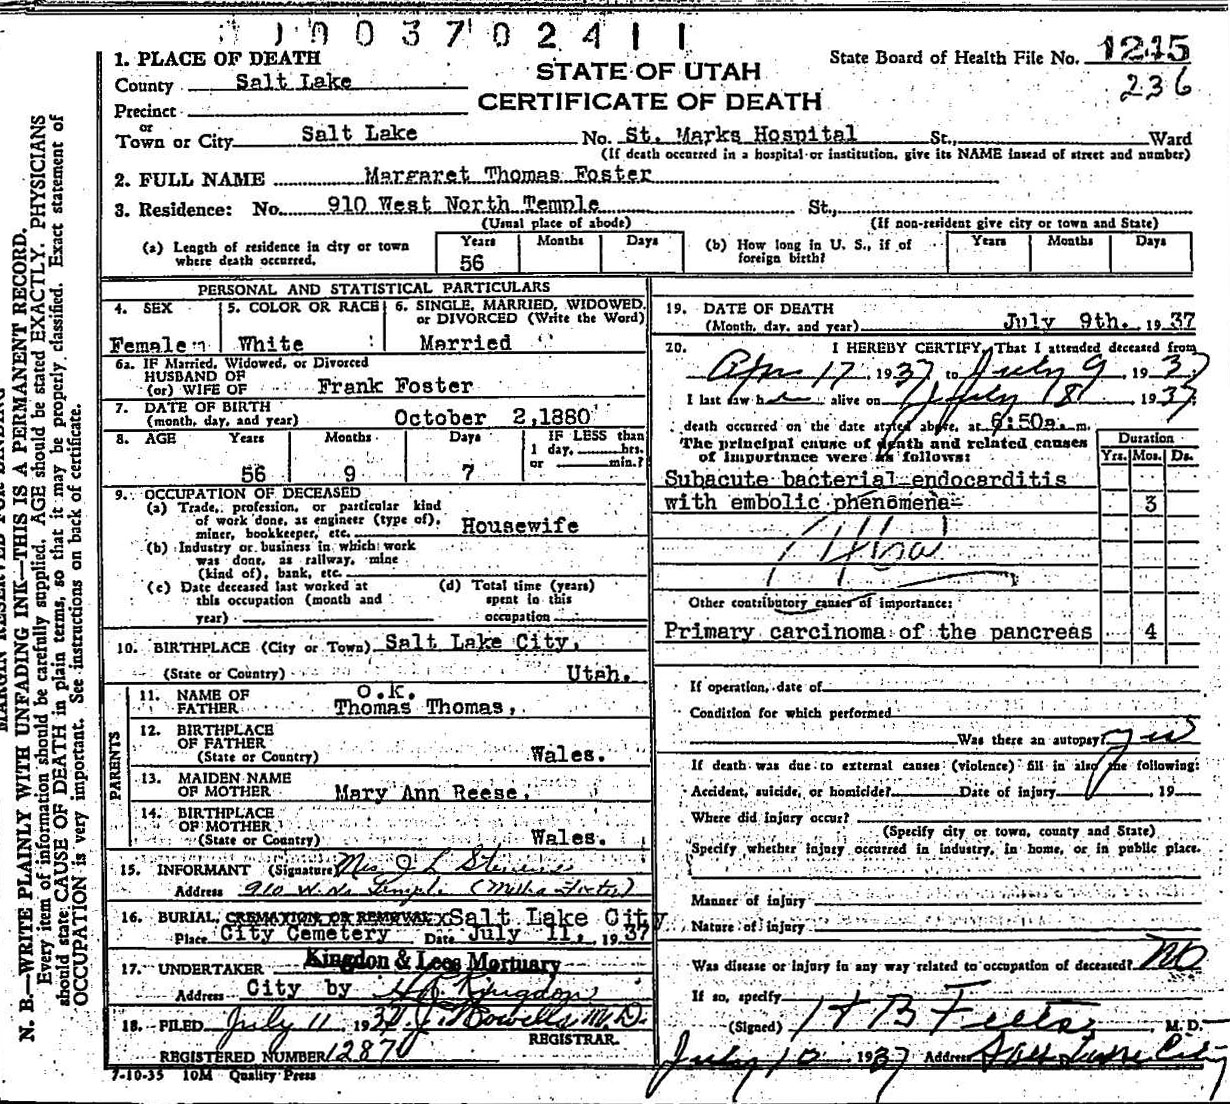 0 0 3 7 0 2 4 1 1
1. PLACE OF DEATH
STATE OF UTAH
CERTIFICATE OF DEATH
State Board of Health File No. 1215
236
County Salt Lake
Precinct
or
Town or City Salt Lake No. St. Marks Hospital St., Ward
(If death occurred in a hospital or institution, give its NAME instead of street and number)
2. FULL NAME Margaret Thomas Foster
3. Residence: No. 910 West North Temple St.,
(Usual place of abode) (If non-resident give city or town and State)
(a) Length of residence in city or town where death occurred. Years 56 Months Days
(b) How long in U. S., if of foreign birth? Years Months Days
PERSONAL AND STATISTICAL PARTICULARS
4. SEX Female
5. COLOR OR RACE White
6. SINGLE, MARRIED, WIDOWED, or DIVORCED (Write the Word) Married
6a. IF Married, Widowed, or Divorced
HUSBAND OF
(or) WIFE OF Frank Foster
7. DATE OF BIRTH
(month, day, and year) October 2, 1880
8. AGE Years Months Days IF LESS than
1 day, hrs.
or min.?
56 9 7
9. OCCUPATION OF DECEASED
(a) Trade, profession, or particular kind
of work done, as engineer (type of),
miner, bookkeeper, etc. Housewife
(b) Industry or business in which work
was done, as railway, mine
(kind of), bank, etc.
(c) Date deceased last worked at
this occupation (month and
year)
(d) Total time (years)
spent in this
occupation
10. BIRTHPLACE (City or Town) Salt Lake City,
(State or Country) Utah.
PARENTS
11. NAME OF
FATHER
O.K.
Thomas Thomas,
12. BIRTHPLACE
OF FATHER
(State or Country) Wales.
13. MAIDEN NAME
OF MOTHER Mary Ann Reese,
14. BIRTHPLACE
OF MOTHER
(State or Country) Wales.
15. INFORMANT (Signature) Mrs J L
Address 910 W. No. Temple
16. BURIAL, CREMATION OR REMOVAL x Salt Lake City
Place City Cemetery Date July 11, 1937
17. UNDERTAKER Kingdon & Lees Mortuary
Address City by Kingdon
18. FILED July 11 1937 M.D.
REGISTRAR.
REGISTERED NUMBER 12870
7-10-35 10M Quality Press
19. DATE OF DEATH
(Month, day, and year) July 9th. 1937
20. I HEREBY CERTIFY, That I attended deceased from
Apr 17 1937 to July 9, 1937
I last saw her alive on July 8 1937
death occurred on the date stated above, at 6:50a. m.
The principal cause of death and related causes
of importance were as follows:
Duration
Yrs. Mos. Ds.
Subacute bacterial endocarditis
with embolic phenomena 3
Other contributory causes of importance:
Primary carcinoma of the pancreas 4
If operation, date of
Condition for which performed
Was there an autopsy? yes
If death was due to external causes (violence) fill in also the following:
Accident, suicide, or homicide? Date of injury , 19
Where did injury occur?
(Specify city or town, county and State)
Specify whether injury occurred in industry, in home, or in public place.
Manner of injury
Nature of injury
Was disease or injury in any way related to occupation of deceased? No
If so, specify
(Signed) M. D.
July 10 1937 Address Salt Lake City
N. B.—WRITE PLAINLY WITH UNFADING INK—THIS IS A PERMANENT RECORD.
Every item of information should be carefully supplied. AGE should be stated EXACTLY. PHYSICIANS
should state CAUSE OF DEATH in plain terms, so that it may be properly classified. Exact statement of
OCCUPATION is very important. See instructions on back of certificate.